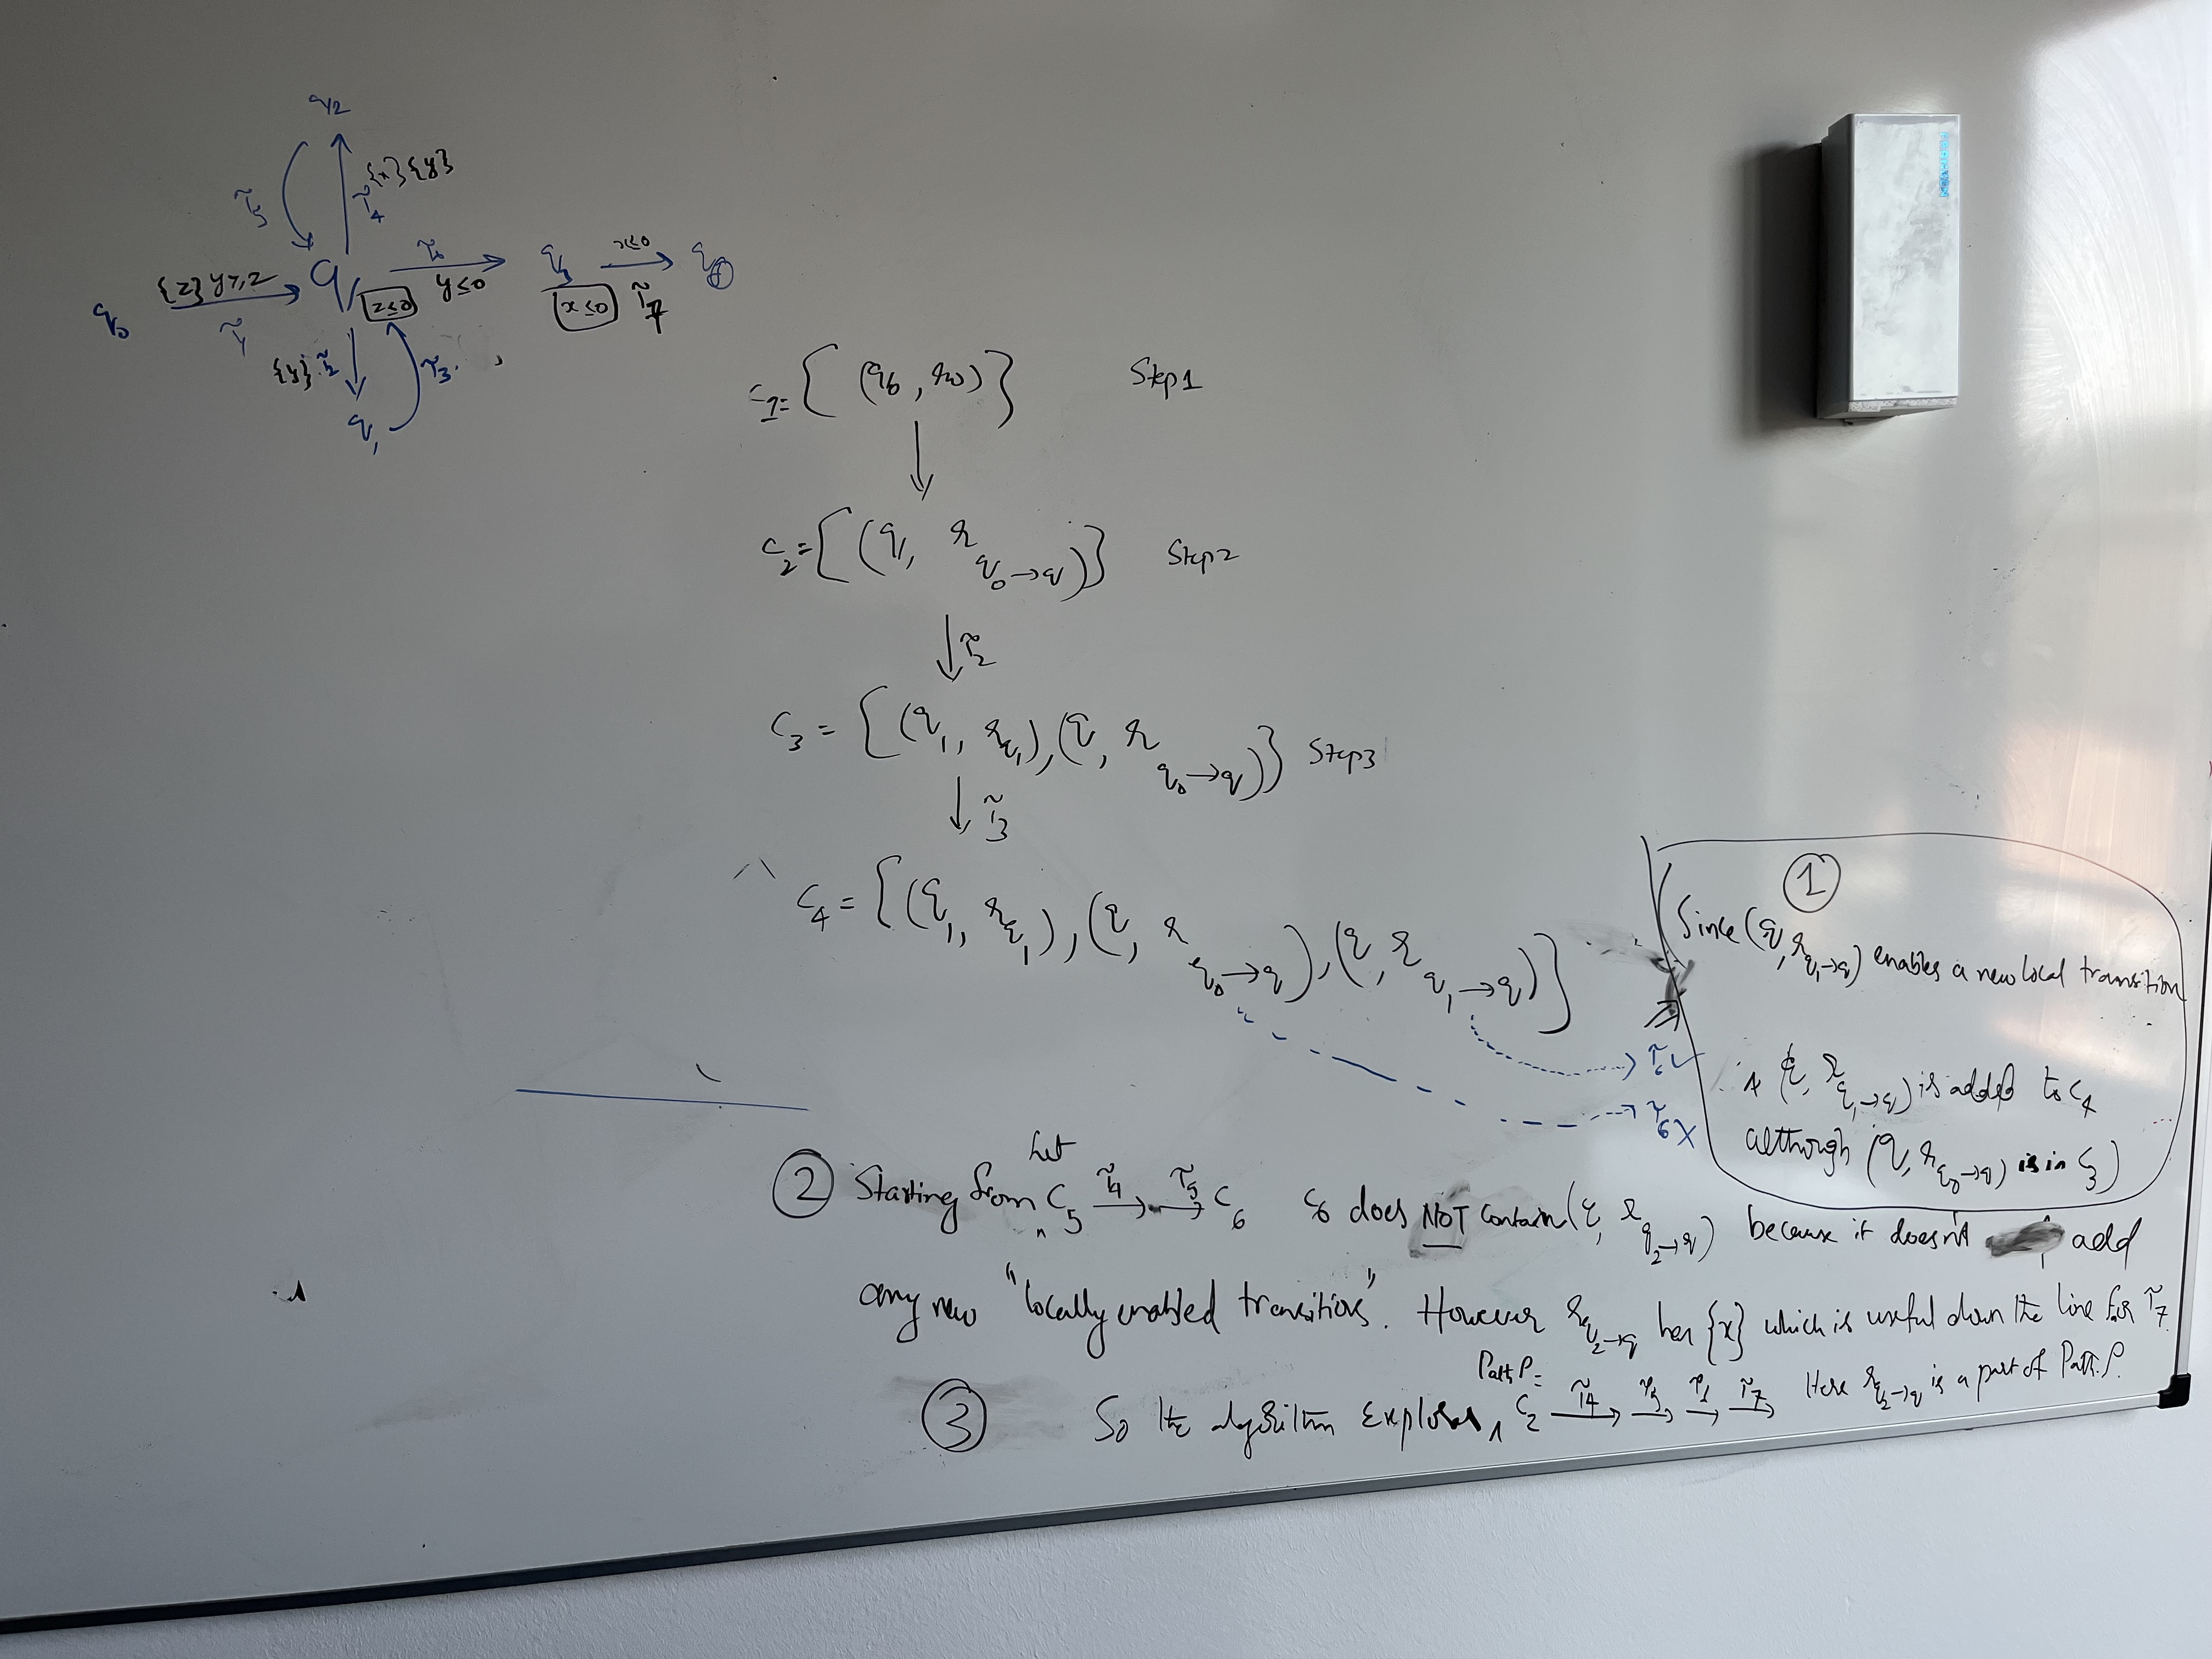 q2
{x}{y}
τ5
τ4
{z} y≥2
τ6
x≤0
q0
q
q3
qf
τ1
z≤0
y≤0
x≤0
τ7
{y} τ2
τ3
q1
C1 = { (q0, r0) } Step 1
C2 = { (q, r q0→q) } Step 2
τ2
C3 = { (q1, r q1), (q, r q0→q) } Step 3
τ3
C4 = { (q1, r q1), (q, r q0→q), (q, r q1→q) }
τ6 ✓
τ6 X
①
Since (q, r q1→q) enables a new local transition
(q, r q1→q) is added to C4
although (q, r q0→q) is in C3)
② Starting from Let C5 τ4→ τ5→ C6 C6 does NOT contain (q, r q2→q) because it doesn't add
any new "locally enabled transitions". However r q2→q has {x} which is useful down the line for τ7.
③ So the algorithm explores Path P = C2 τ4→ τ5→ → τ7→ Here r q2→q is a part of Path P.